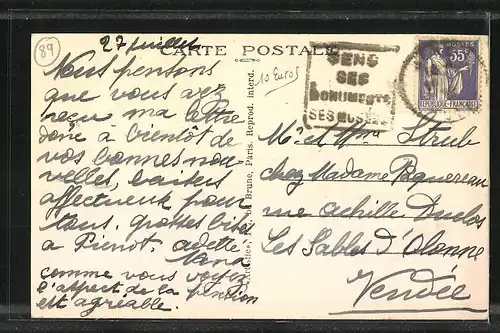 89
27 juillet
CARTE POSTALE
10 Euros
SENS
SES
MONUMENTS
SES MUSÉES
POSTES
55
RÉPUBLIQUE FRANÇAISE
Nous pensons
que vous avez
reçu ma lettre
donc à bientôt de
vos bonnes nou
velles, baisers
affectueux pour
tous. grosses bises
à Pierrot.
comme vous voyez
l'aspect de la pension
est agréable.
de Brune, Paris. Reprod. interd.
Mr et Mme Strub
chez Madame
rue Achille Duclos
Les Sables d'Olonne
Vendée